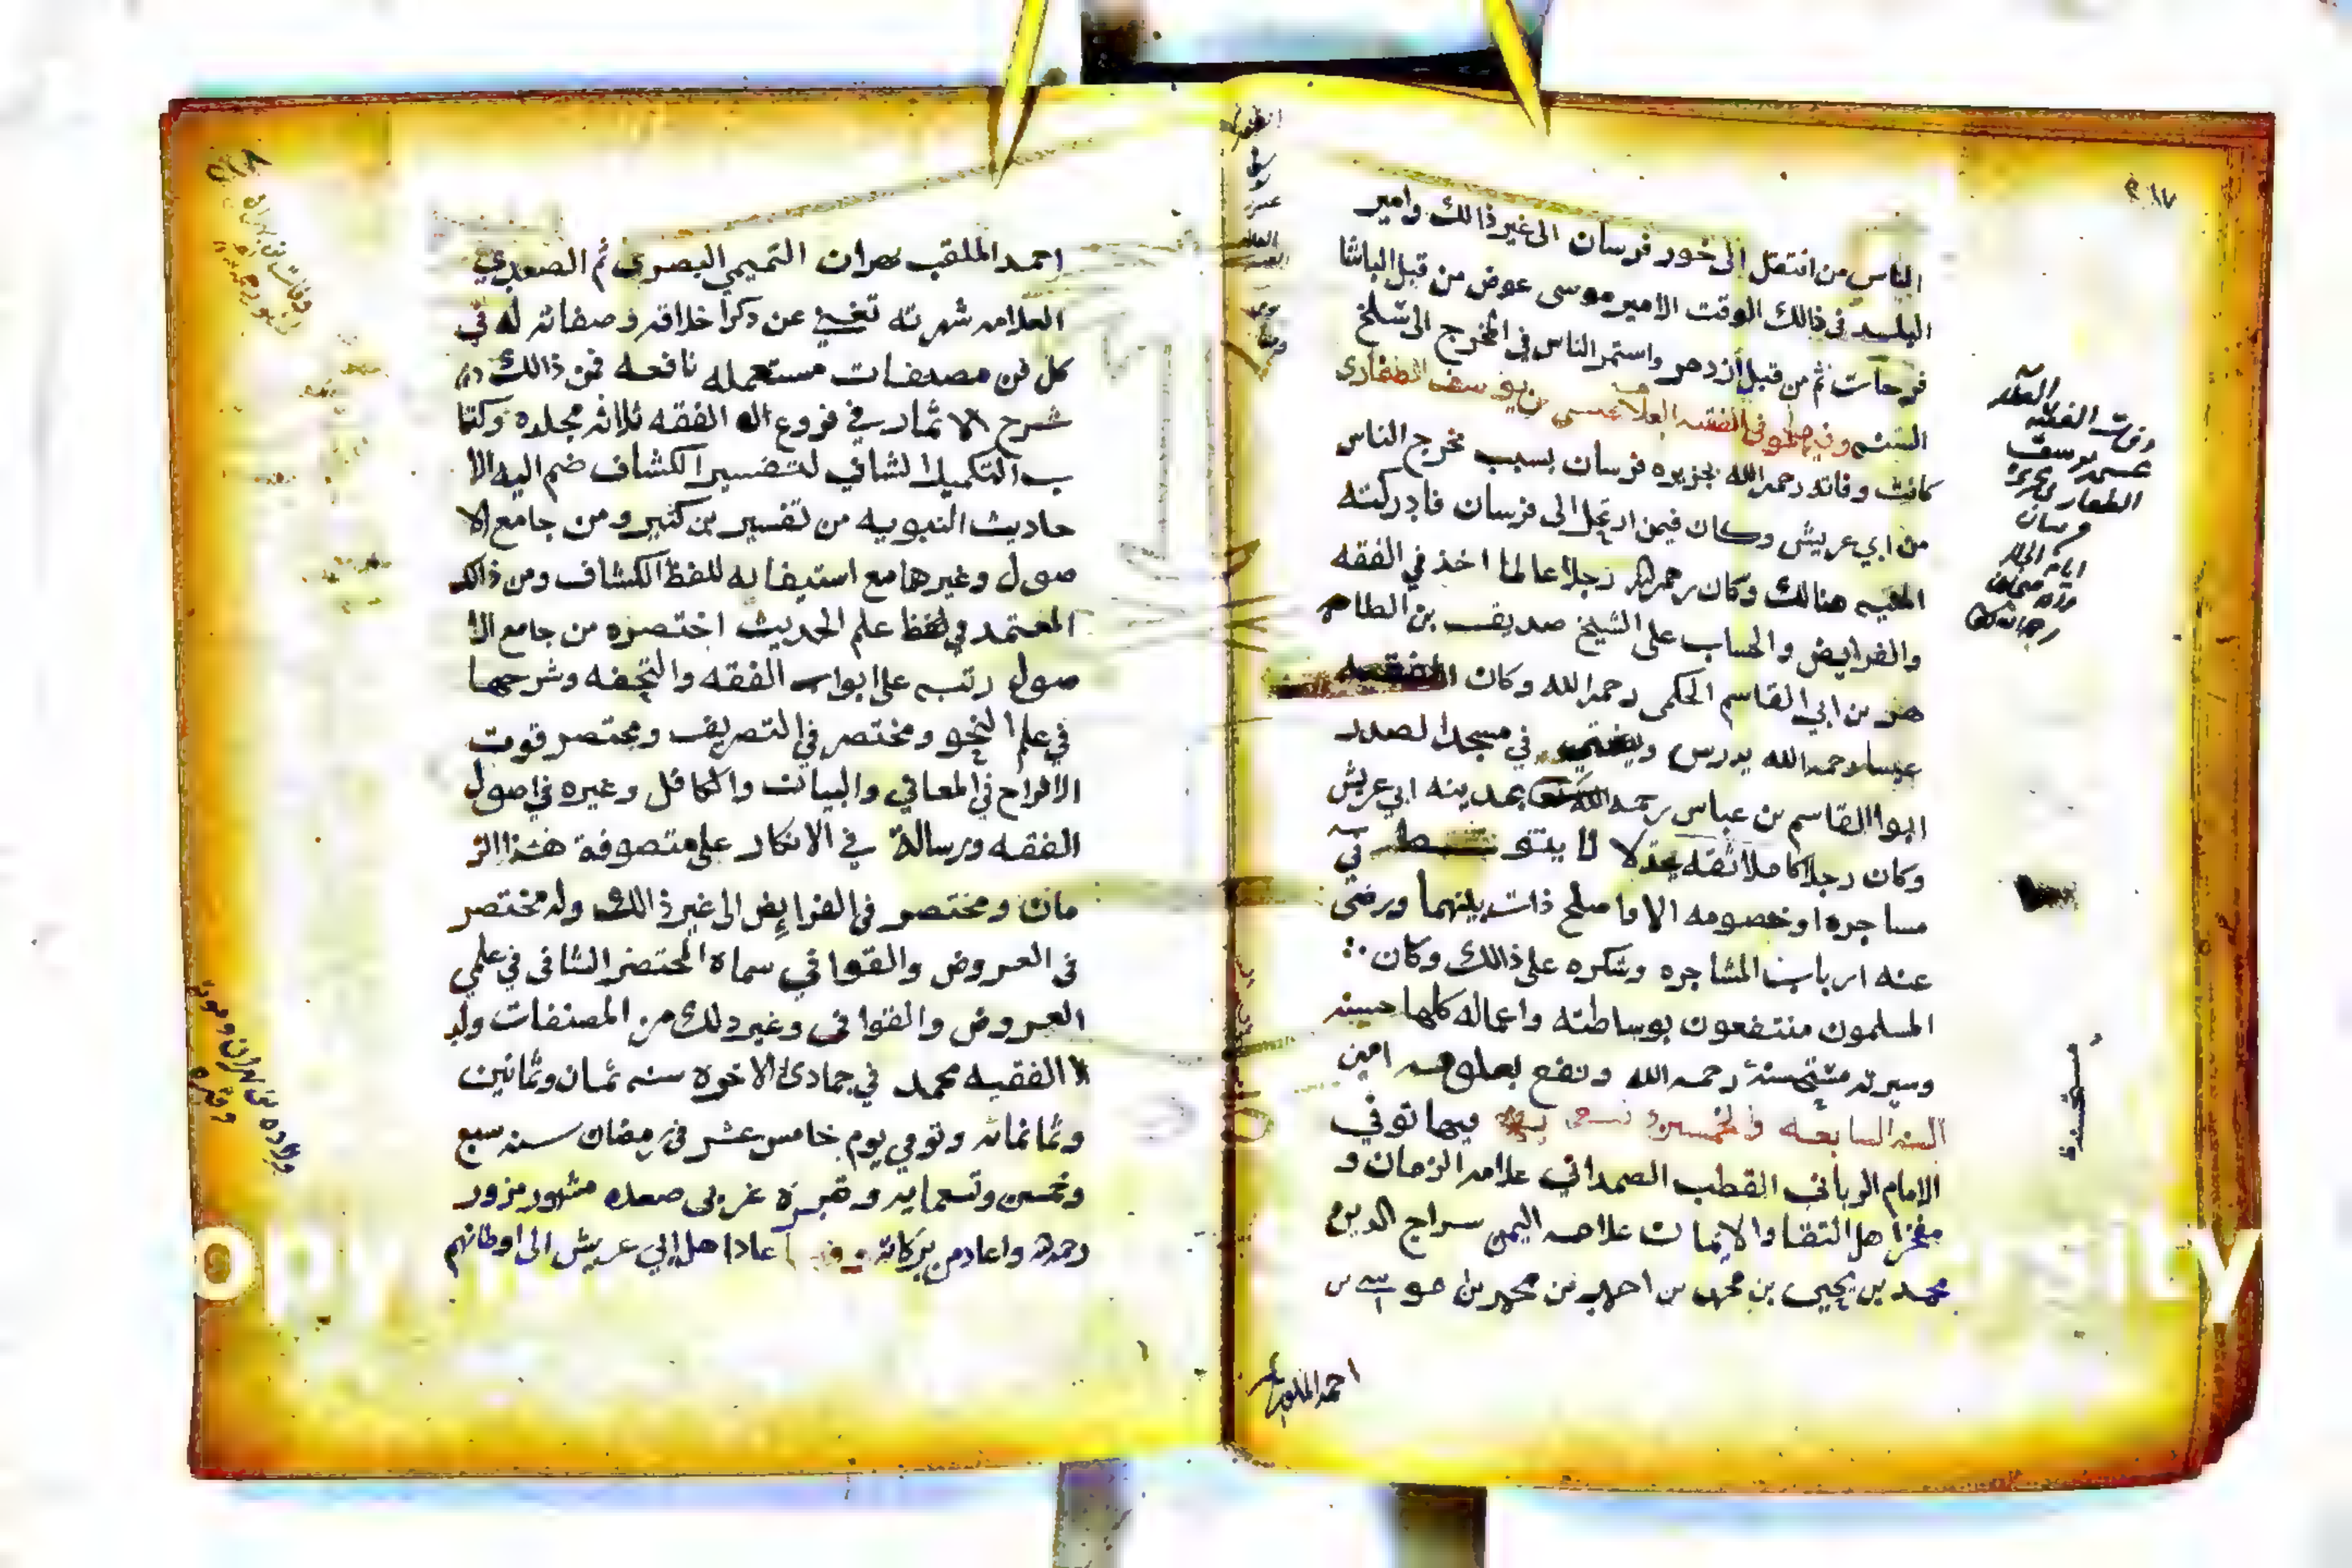 ٢١٧
الناس من انتقل الى خور فرسان الى غير ذالك وامير
البلد في ذالك الوقت الامير موسى عوض من قبل الباشا
فرحات ثم من قبل ازدمر واستمر الناس في المخرج الى سلخ
السنه وفيها توفي الفقيه العلامه عيسى بن يوسف الظفاري
كانت وفاته رحمه الله بجزيره فرسان بسبب مخرج الناس
من ابي عريش وكان فيمن ارتحل الى فرسان فادركته
المنيه هنالك وكان رحمه الله رجلا عالما اخذ في الفقه
والفرايض والحساب على الشيخ صديق بن الطاهر
بن ابي القاسم الحكمي رحمه الله وكان الفقيه
عيسا رحمه الله يدرس ويفتي في مسجد الصدر
ابوا القاسم بن عباس رحمه الله بمدينه ابي عريش
وكان رجلا كاملا ثقه عدلا لا يتوسط في
مساجره او خصومه الا واصلح ذات بينهما ورضى
عنه ارباب المشاجره وشكره على ذالك وكان
المسلمون منتفعون بوساطته واعماله كلها حسنه
وسيرته مستحسنة رحمه الله ونفع بعلومه امين
السنه السابعه والخمسين فيها توفي
الامام الرباني القطب الصمداني علامه الزمان و
مفخر اهل التقا والايمان علامه اليمن سراج الدين
محمد بن يحيى بن محمد بن احمد بن محمد بن موسى بن
احمد الملقب
وفات الفقيه العلامه
عيسى يوسف
بجزيره
فرسان
مستحسنة
٢١٨
احمد الملقب بهران التميمي البصري ثم الصعدي
العلامه شهرته تغني عن ذكر اخلاقه وصفاته له في
كل فن مصنفات مستعمله نافعه فمن ذالك
شرح الاثمار في فروع الفقه ثلاثه مجلده وكتا
ب التكميل الشافي لتفسير الكشاف ضم اليه الا
حاديث النبويه من تفسير بن كثير ومن جامع الا
صول وغيرها مع استيفايه للفظ الكشاف ومن ذالك
المعتمد في لفظ علم الحديث اختصره من جامع الا
صول رتبه على ابواب الفقه والتحفه وشرحها
في علم النحو ومختصر في التصريف ومختصر قوت
الافراح في المعاني والبيان والكافل وغيره في اصول
الفقه ورسالة في الانكار على متصوفة هذا الز
مان ومختصر في الفرايض الى غير ذالك وله مختصر
في العروض والقوافي سماه المختصر الشافي في علمي
العروض والقوافي وغير ذلك من المصنفات ولد
الفقيه محمد في جمادى الاخره سنه ثمان وثمانين
وثمانمائه وتوفي يوم خامس عشر في رمضان سنه سبع
وخمسين وتسعمايه وقبره غربي صعده مشهور مزور
رحمه الله واعاد من بركاته وفيها عاد اهل ابي عريش الى اوطانهم